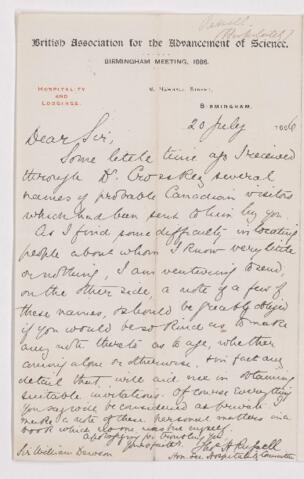 British Association for the Advancement of Science.
BIRMINGHAM MEETING, 1886.
HOSPITALITY
AND
LODGINGS.
BIRMINGHAM.
20 July 1886
Dear Sir,
Some little time ago I received
through Dr. Crosskey several
names of probable Canadian visitors
which had been sent to him by you.
As I find some difficulty in locating
people about whom I know very little
or nothing, I am venturing to send,
on the other side, a note of a few of
these names, & should be greatly obliged
if you would be so kind as to make
any note thereto as to age, whether
coming alone or otherwise, & in fact any
detail that will aid me in obtaining
suitable invitations. Of course everything
you say would be considered as private. I
make a note of these personal matters in a
book which no one uses but myself.
Apologizing for troubling you
Yours faithfully
Thos H Russell
Sir William Dawson
Hon. Sec. Hospitality Committee